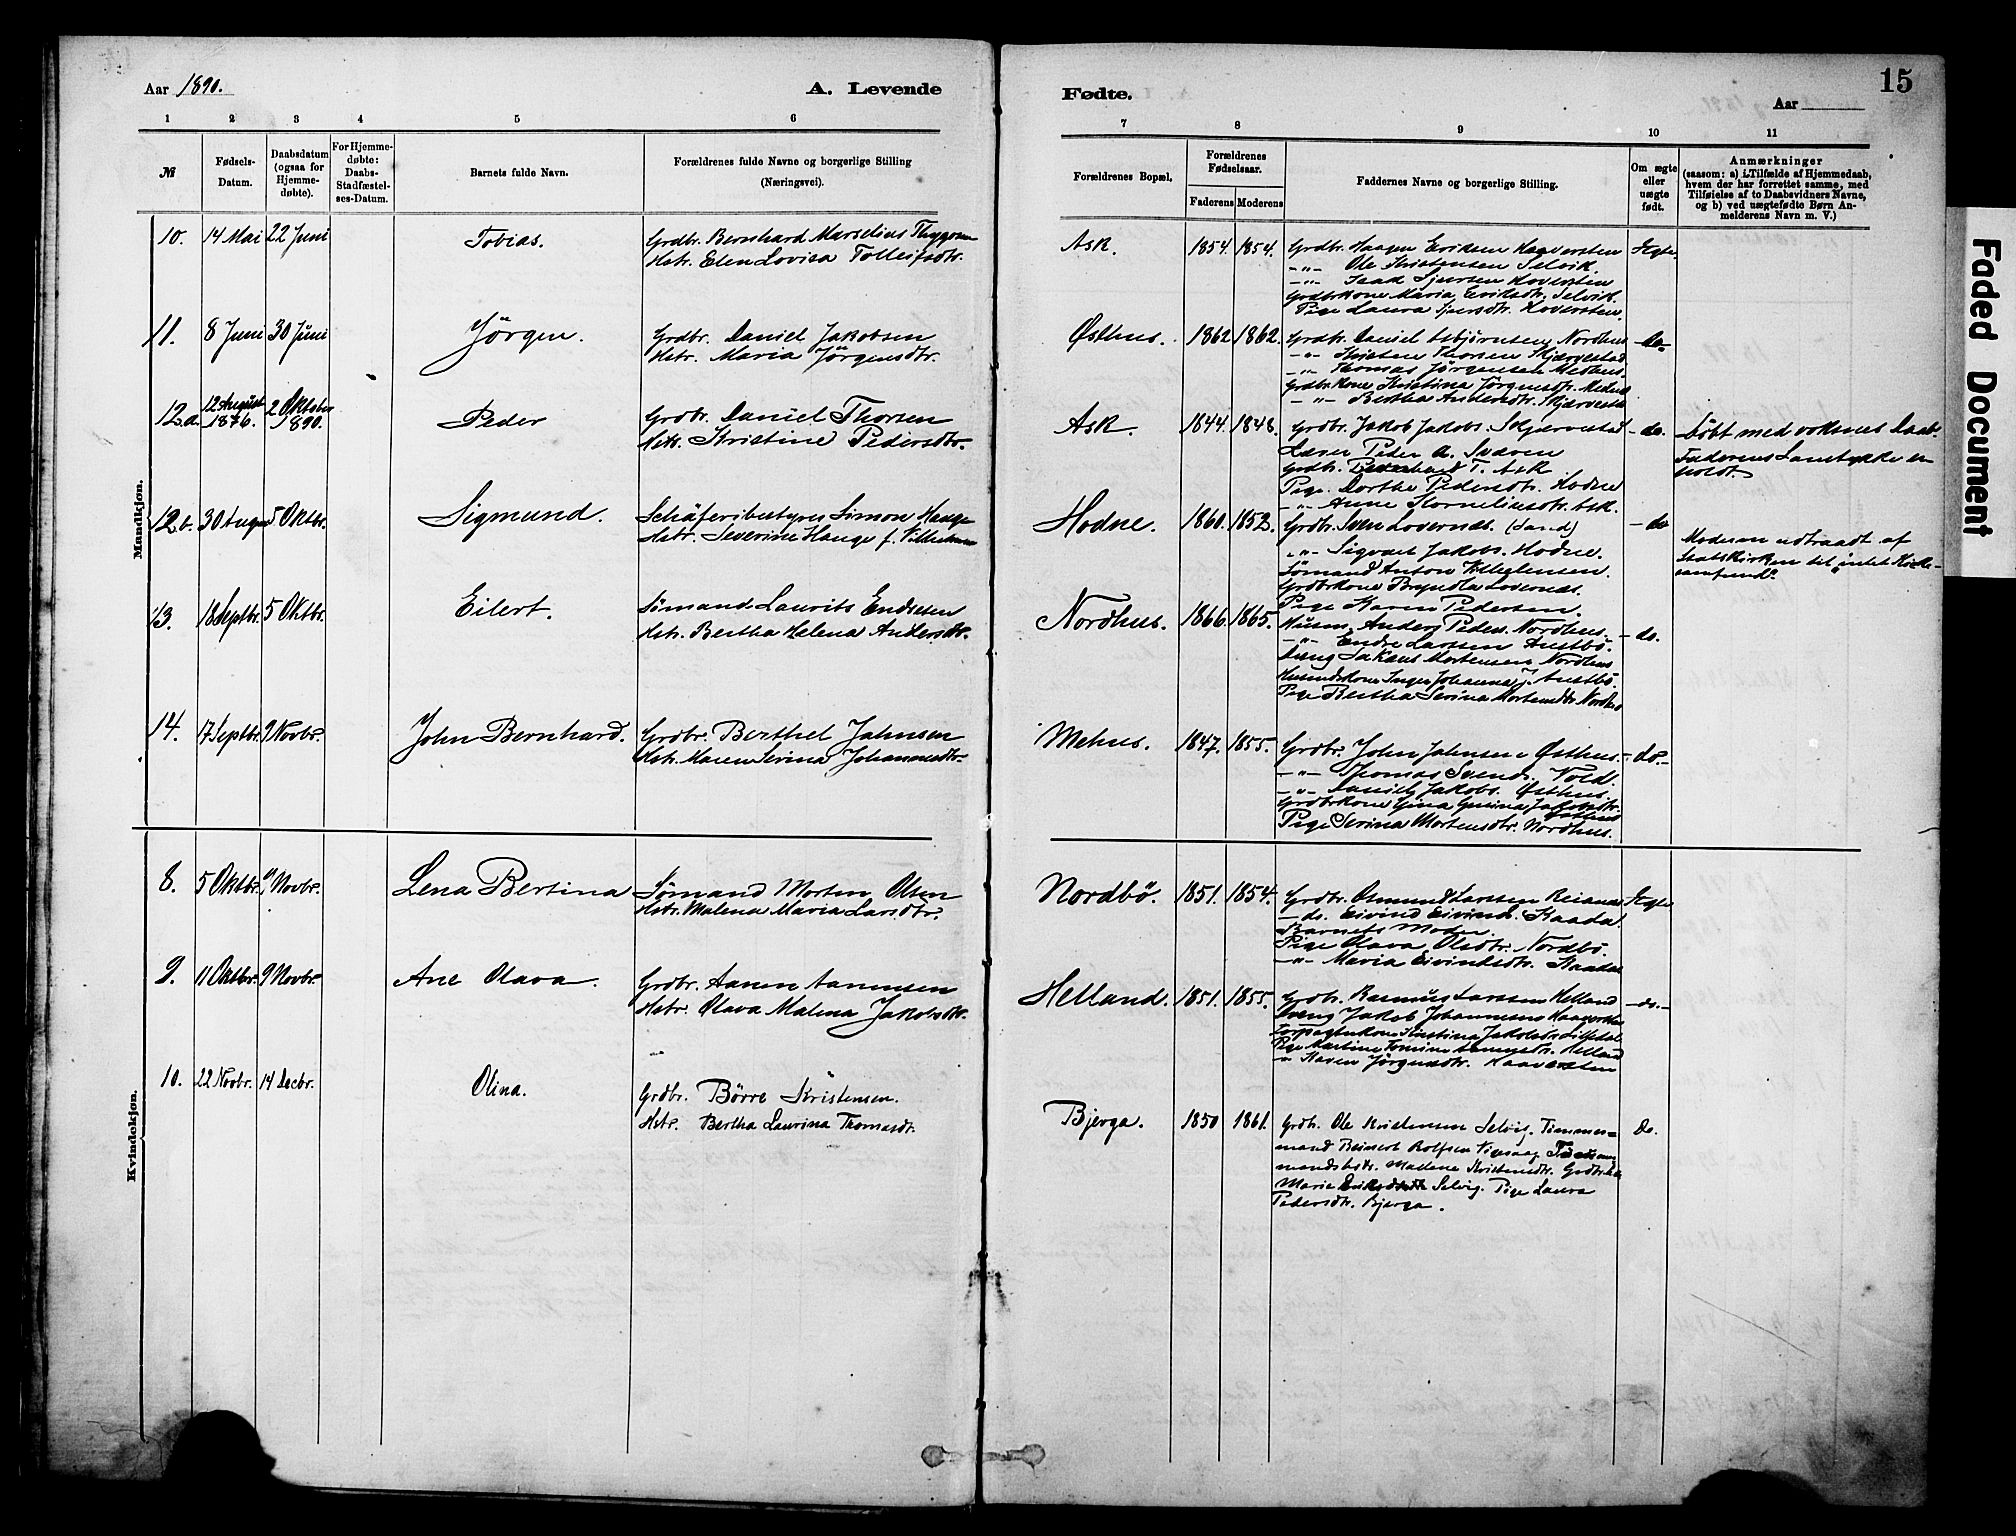 Aar 1890.
A. Levende
Fødte.
Aar
15
1 2 3 4 5 6 7 8 9 10 11
№
Fødsels-Datum.
Daabsdatum (ogsaa for Hjemme-døbte).
For Hjemme-døbte: Daabs-Stadfæstel-ses-Datum.
Barnets fulde Navn.
Forældrenes fulde Navne og borgerlige Stilling (Næringsvei).
Forældrenes Bopæl.
Forældrenes Fødselsaar.
Faderens Moderens
Faddernes Navne og borgerlige Stilling.
Om ægte eller uægte født.
Anmærkninger
(saasom: a) i Tilfælde af Hjemmedaab, hvem der har forrettet samme, med Tilføielse af to Daabsvidners Navne, og b) ved uægtefødte Børn An-melderens Navn m. V.)
Mandkjøn.
10. 14 Mai 22 Juni Tobias. Grdbr. Bernhard Marselius Thygesen
Hstr. Elen Lovisa Tollefsdtr.
Ask. 1854. 1854. Grdbr. Haagen Eriksen Haaversten Ægte.
-"- Ole Kristensen Selvik.
-"- Isak Sjursen Hoversten
Grdbrkone Maria Eriksdtr. Selvik.
Pige Laura Sjursdtr. Hoversten.
11. 8 Juni 30 Juni Jörgen. Grdbr. Daniel Jakobsen
Hstr. Maria Jörgensdtr.
Østhus. 1862 1862. Grdbr. Daniel Asbjørnsen Nordhus -do-
-"- Kristen Thorsen Skjærvestad
-"- Thomas Jørgensen Medhus.
Grdbrkone Kristina Jørgensdtr. Medhus
-"- Bertha Andersdtr. Skjærvestad
12.a. 12 August 1876. 2 Oktober 1890. Peder Grdbr. Daniel Thorsen
Hstr. Kristine Pedersdtr.
Ask. 1844. 1848. Grdbr. Jakob Jakobs. Skjervestad -do.
Lærer Peder A. Svaren
Grdbr. Bernhard T. Ask
Pige. Dorthe Pedersdtr. Hodne
-"- Anne Korneliusdtr. Ask.
Döbt med voksnes Daab.
Faderens Samtykke er
holdt.
12.b. 30 August 5 Oktbr. Sigmund. Schäferibestyrer Simon Hauge
Hstr. Severine Hauge f. Vilhelmsen
Hodne. 1860. 1852. Grdbr. Sven Lovernæs. (Sand) -do
-"- Sigvart Jakobs. Hodne.
Sømand Anton Vilhelmsen.
Grdbrkone Brynilda Lovernæs.
Pige Karen Pedersen.
Moderen udtraadt af
Statskirken til "intet Kirke-
samfund".
13. 18 Septbr. 5 Oktbr. Eilert. Sömand Laurits Endresen
Hstr. Bertha Helena Andersdtr.
Nordhus. 1866. 1865. Husm. Anders Peders. Nordhus. -do.
-"- Endre Larssen Austbö.
Dreng Sakarias Mortensen Nordhus
Husmdskone Inger Johanna J. Austbö.
Pige Bertha Serina Mortensdtr. Nordhus
14. 17 Septbr. 9 Novbr. John Bernhard. Grdbr. Berthel Johnsen
Hstr. Maren Serina Johannesdtr.
Mehus. 1847. 1855. Grdbr. John Johnsen Østhus. -do.-
-"- Thomas Svends. Vold.
-"- Daniel Jakobs. Østhus.
Grdbrkone Gina Gurina Jakobsdtr. Østhus
Pige Serina Mortensdtr. Nordhus.
Kvindekjøn.
8. 5 Oktbr. 9 Novbr. Lena Bertina Sømand Morten Olsen
Hstr. Malena Maria Larsdtr.
Nordbö. 1851. 1854. Grdbr. Osmund Larssen Reianes Ægte
-do. Eivind Eivinds. Kaada.
Barnets Moder.
Pige Olava Olsdtr. Nordbö.
-"- Maria Eivindsdtr. Kaada
9. 11 Oktbr. 9 Novbr. Ane Olava. Grdbr. Aanen Aanensen
Hstr. Olava Malena Jakobsdtr.
Helland. 1851. 1855. Grdbr. Rasmus Larssen Helland -do.-
Dreng Jakob Johannesen Haaversten
Forpagterkone Kristina Jakobsdtr.
Pige Martine Tomine Aanensdtr. Helland
" Karen Jørgensdtr. Haaversten
10. 22 Novbr. 14 Decbr. Olina. Grdbr. Börre Kristensen.
Hstr. Bertha Laurina Thomasdt.
Bjerga. 1850 1861. Grdb. Ole Kristensen Selvig. Timmer- Do.
mand Reinert Rolfsen Timmer-
mandshstr. Mallene Kristensdtr. Grdbrkone
Marie Eriksdtr. Selvig. Pige Laura
Pedersdtr. Bjerga.
Faded Document